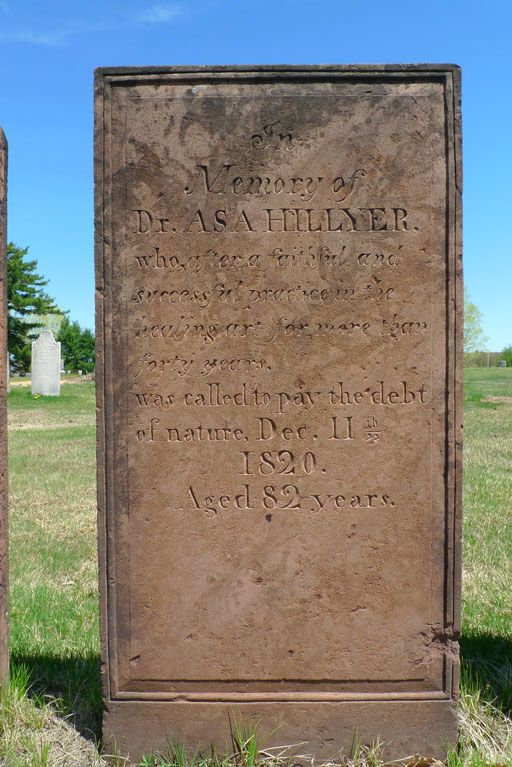 In
Memory of
Dr. ASA HILLYER,
who, after a faithful and
successful practice in the
healing art for more than
forty years,
was called to pay the debt
of nature, Dec. 11th
1820.
Aged 82 years.